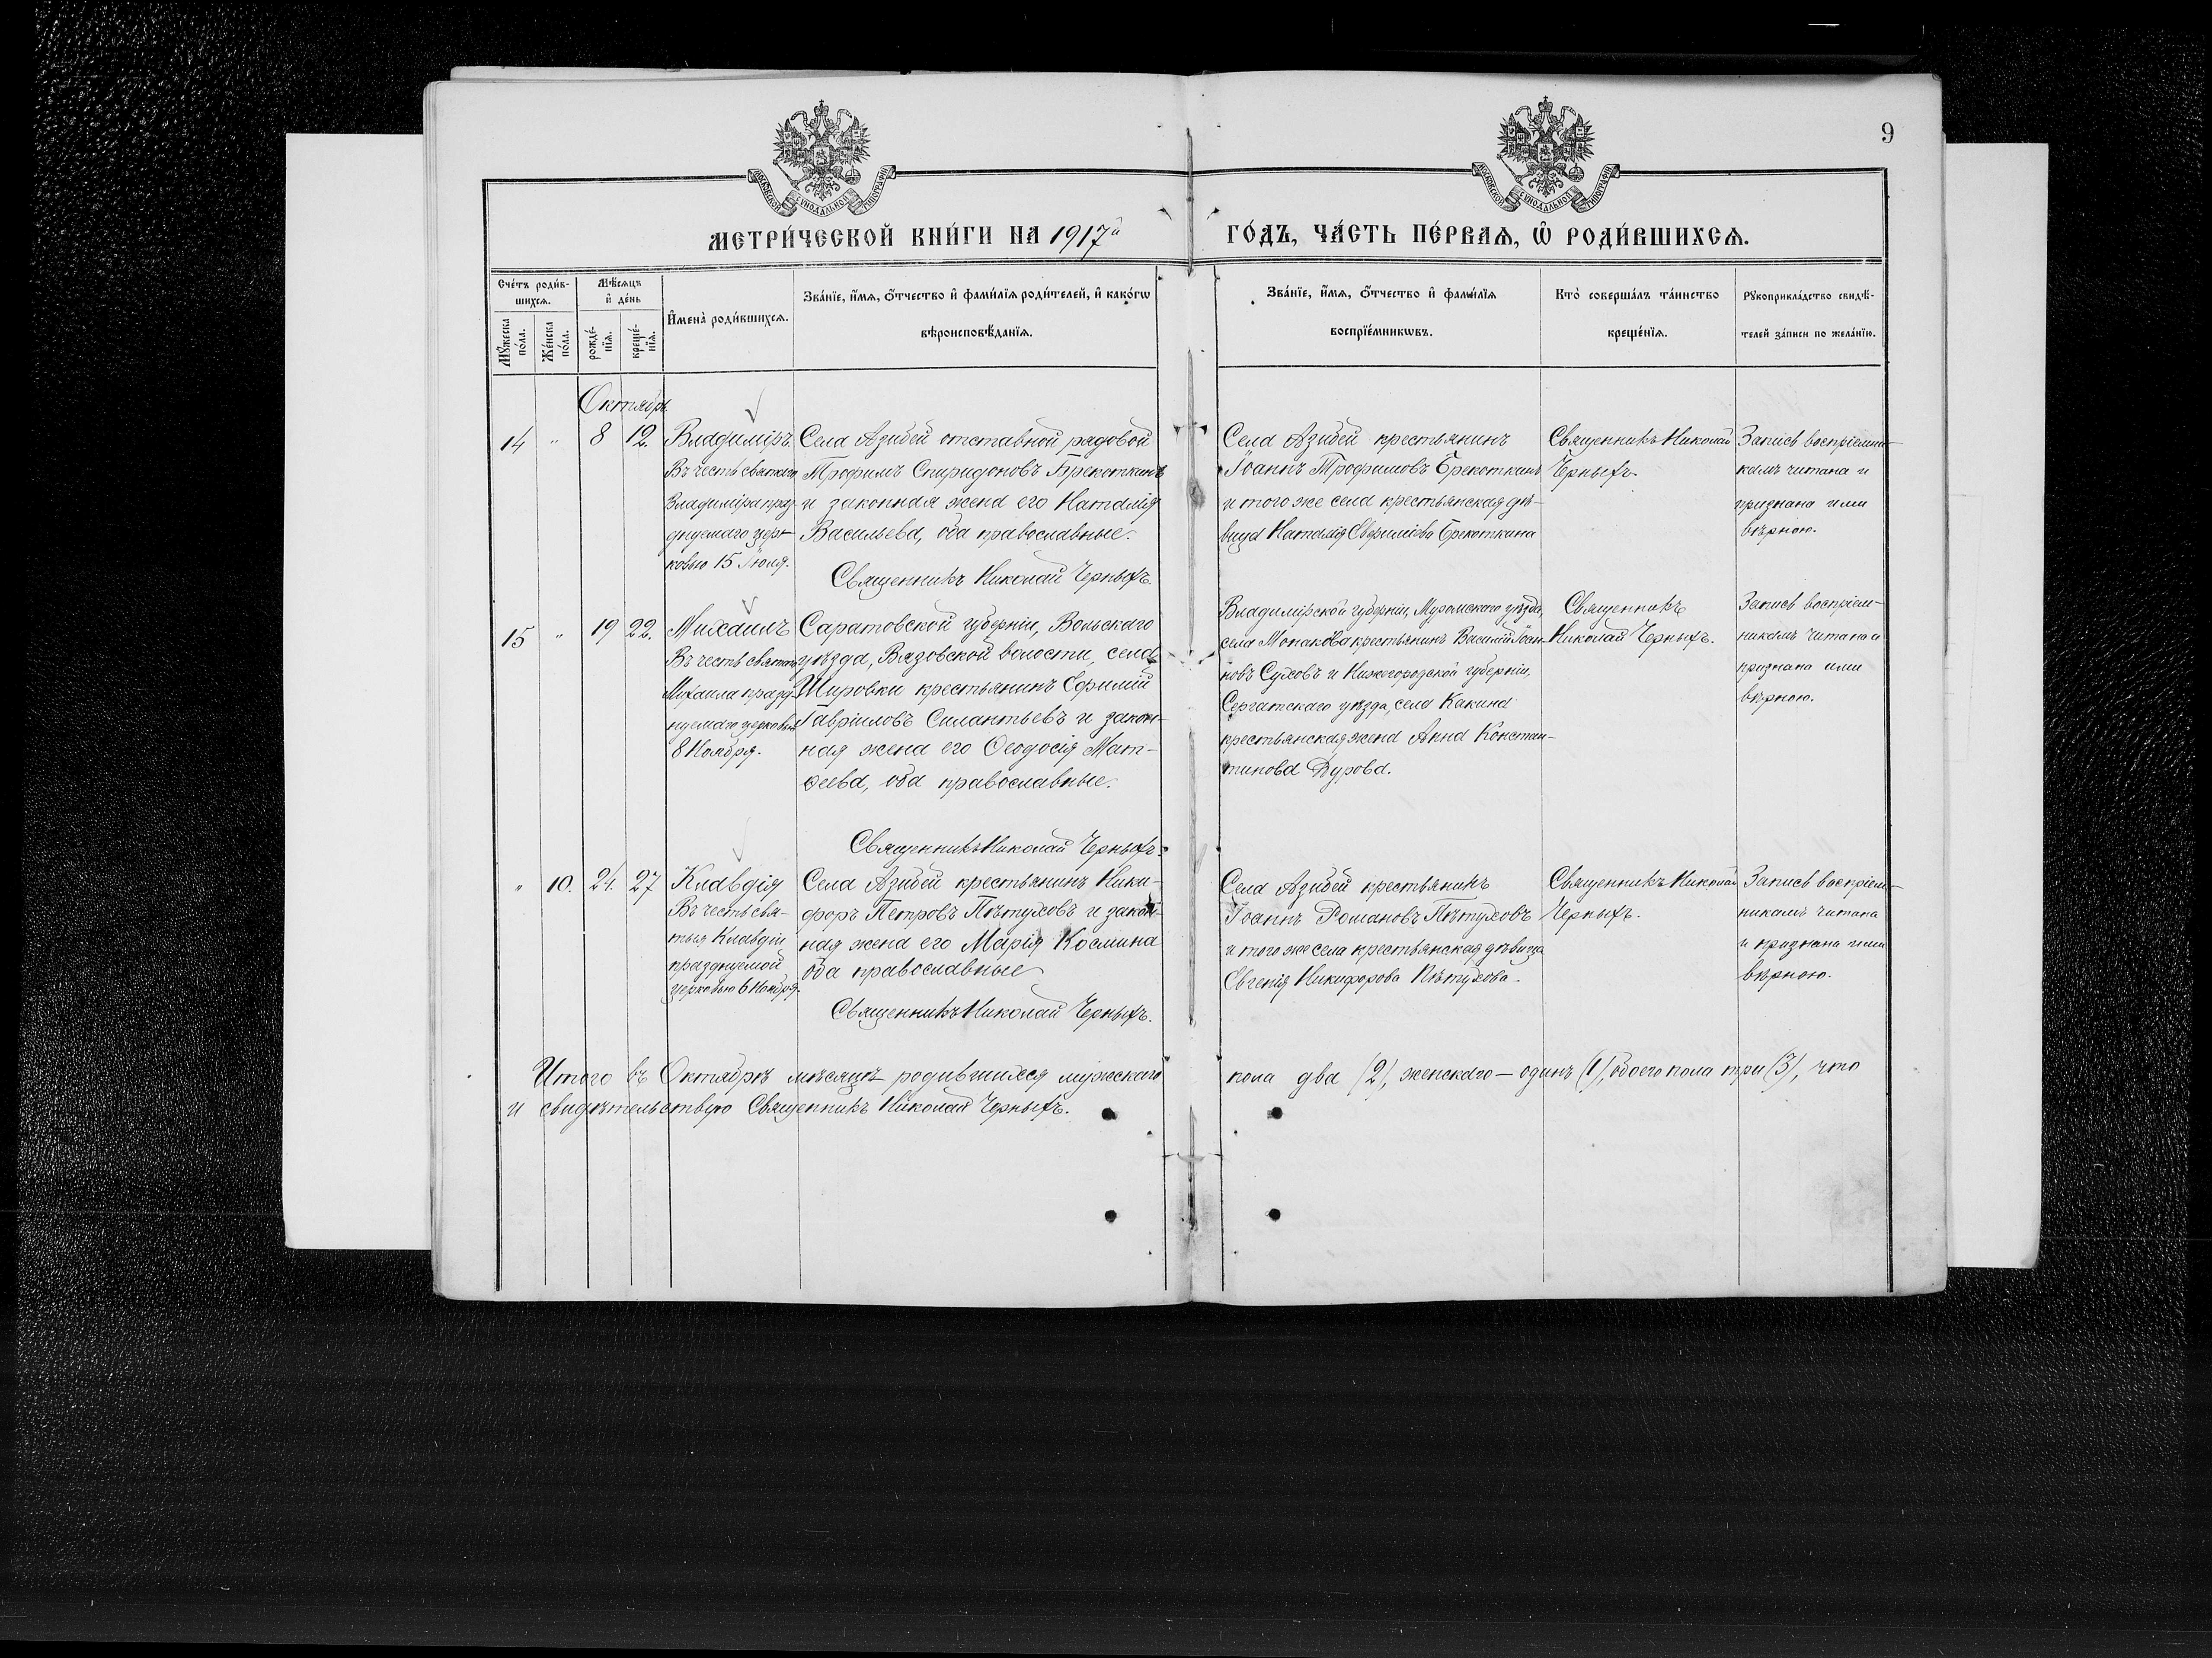 9
МОСКОВСКОЙ СѴНОДАЛЬНОЙ ТИПОГРАФІИ
МОСКОВСКОЙ СѴНОДАЛЬНОЙ ТИПОГРАФІИ
МЕТРИ́ЧЕСКОЙ КНИ́ГИ НА 1917й ГО́ДЪ, ЧА́СТЬ ПЕ́РВАѦ, Ѡ҆ РОДИ́ВШИХСѦ.
Сче́тъ роди́в-
шихсѧ.
Мѣ́сѧцъ
и҆ де́нь
Мꙋ́жеска
по́ла.
Же́нска
по́ла.
рожде́-
нїѧ.
креще́-
нїѧ.
И҆мена̀ роди́вшихсѧ.
Зва́нїе, и҆́мѧ, о҆́тчество и҆ фами́лїѧ роди́телей, и҆ како́гѡ
вѣроисповѣ́данїѧ.
Зва́нїе, и҆́мѧ, о҆́тчество и҆ фами́лїѧ
воспрїе́мникѡвъ.
Кто̀ соверша́лъ та́инство
креще́нїѧ.
Рꙋкоприкла́дство свидѣ́-
телей за́писи по жела́нїю.
Октябрь
14 " 8 12.
Владиміръ
Въ честь святаго
Владиміра праз-
днуемаго цер-
ковью 15 Іюля.
Села Азибей отставной рядовой
Трофимъ Спиридоновъ Брекоткинъ
и законная жена его Наталія
Васильева, оба православные.
Священникъ Николай Черныхъ.
Села Азибей крестьянинъ
Іоаннъ Трофимовъ Брекоткинъ
и того же села крестьянская дѣ-
вица Наталія Евфиміева Брекоткина
Священникъ Николай
Черныхъ.
Запись воспріемни-
камъ читана и
признана ими
вѣрною.
15 " 19 22.
Михаилъ
Въ честь святаго
Михаила празд-
нуемаго церковью
8 Ноября.
Саратовской губерніи, Вольскаго
уѣзда, Вязовской волости, села
Шировки крестьянинъ Ефимій
Гавріиловъ Силантьевъ и закон-
ная жена его Ѳеодосія Мат-
ѳеева, оба православные.
Священникъ Николай Черныхъ.
Владимірской губерніи, Муромскаго уѣзда,
села Монакова крестьянинъ Василій Іоан-
новъ Суховъ и Нижегородской губерніи,
Сергатскаго уѣзда, села Какина
крестьянская жена Анна Констан-
тинова Дурова.
Священникъ
Николай Черныхъ.
Запись воспріем-
никамъ читана и
признана ими
вѣрною.
" 10. 24. 27
Клавдія
Въ честь свя-
тыя Клавдіи
празднуемой
церковью 6 Ноября.
Села Азибей крестьянинъ Ники-
форъ Петровъ Пѣтуховъ и закон-
ная жена его Марія Космина
оба православные
Священникъ Николай Черныхъ.
Села Азибей крестьянинъ
Іоаннъ Романовъ Пѣтуховъ
и того же села крестьянская дѣвица
Евгенія Никифорова Пѣтухова.
Священникъ Николай
Черныхъ.
Запись воспріем-
никамъ читана
и признана ими
вѣрною.
Итого въ Октябрѣ мѣсяцѣ родившихся мужскаго пола два (2), женскаго — одинъ (1), обоего пола три (3), что
и свидѣтельствую Священникъ Николай Черныхъ.